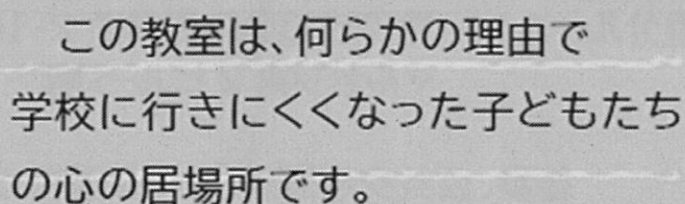 この教室は、何らかの理由で
学校に行きにくくなった子どもたち
の心の居場所です。